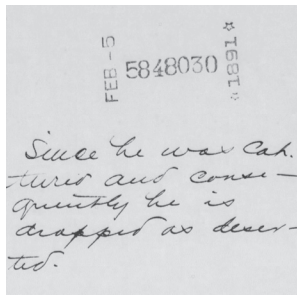 FEB-5
5848030
☆1891☆
Since he was cap.
tured and conse-
quently he is
drapped as deser-
ted.